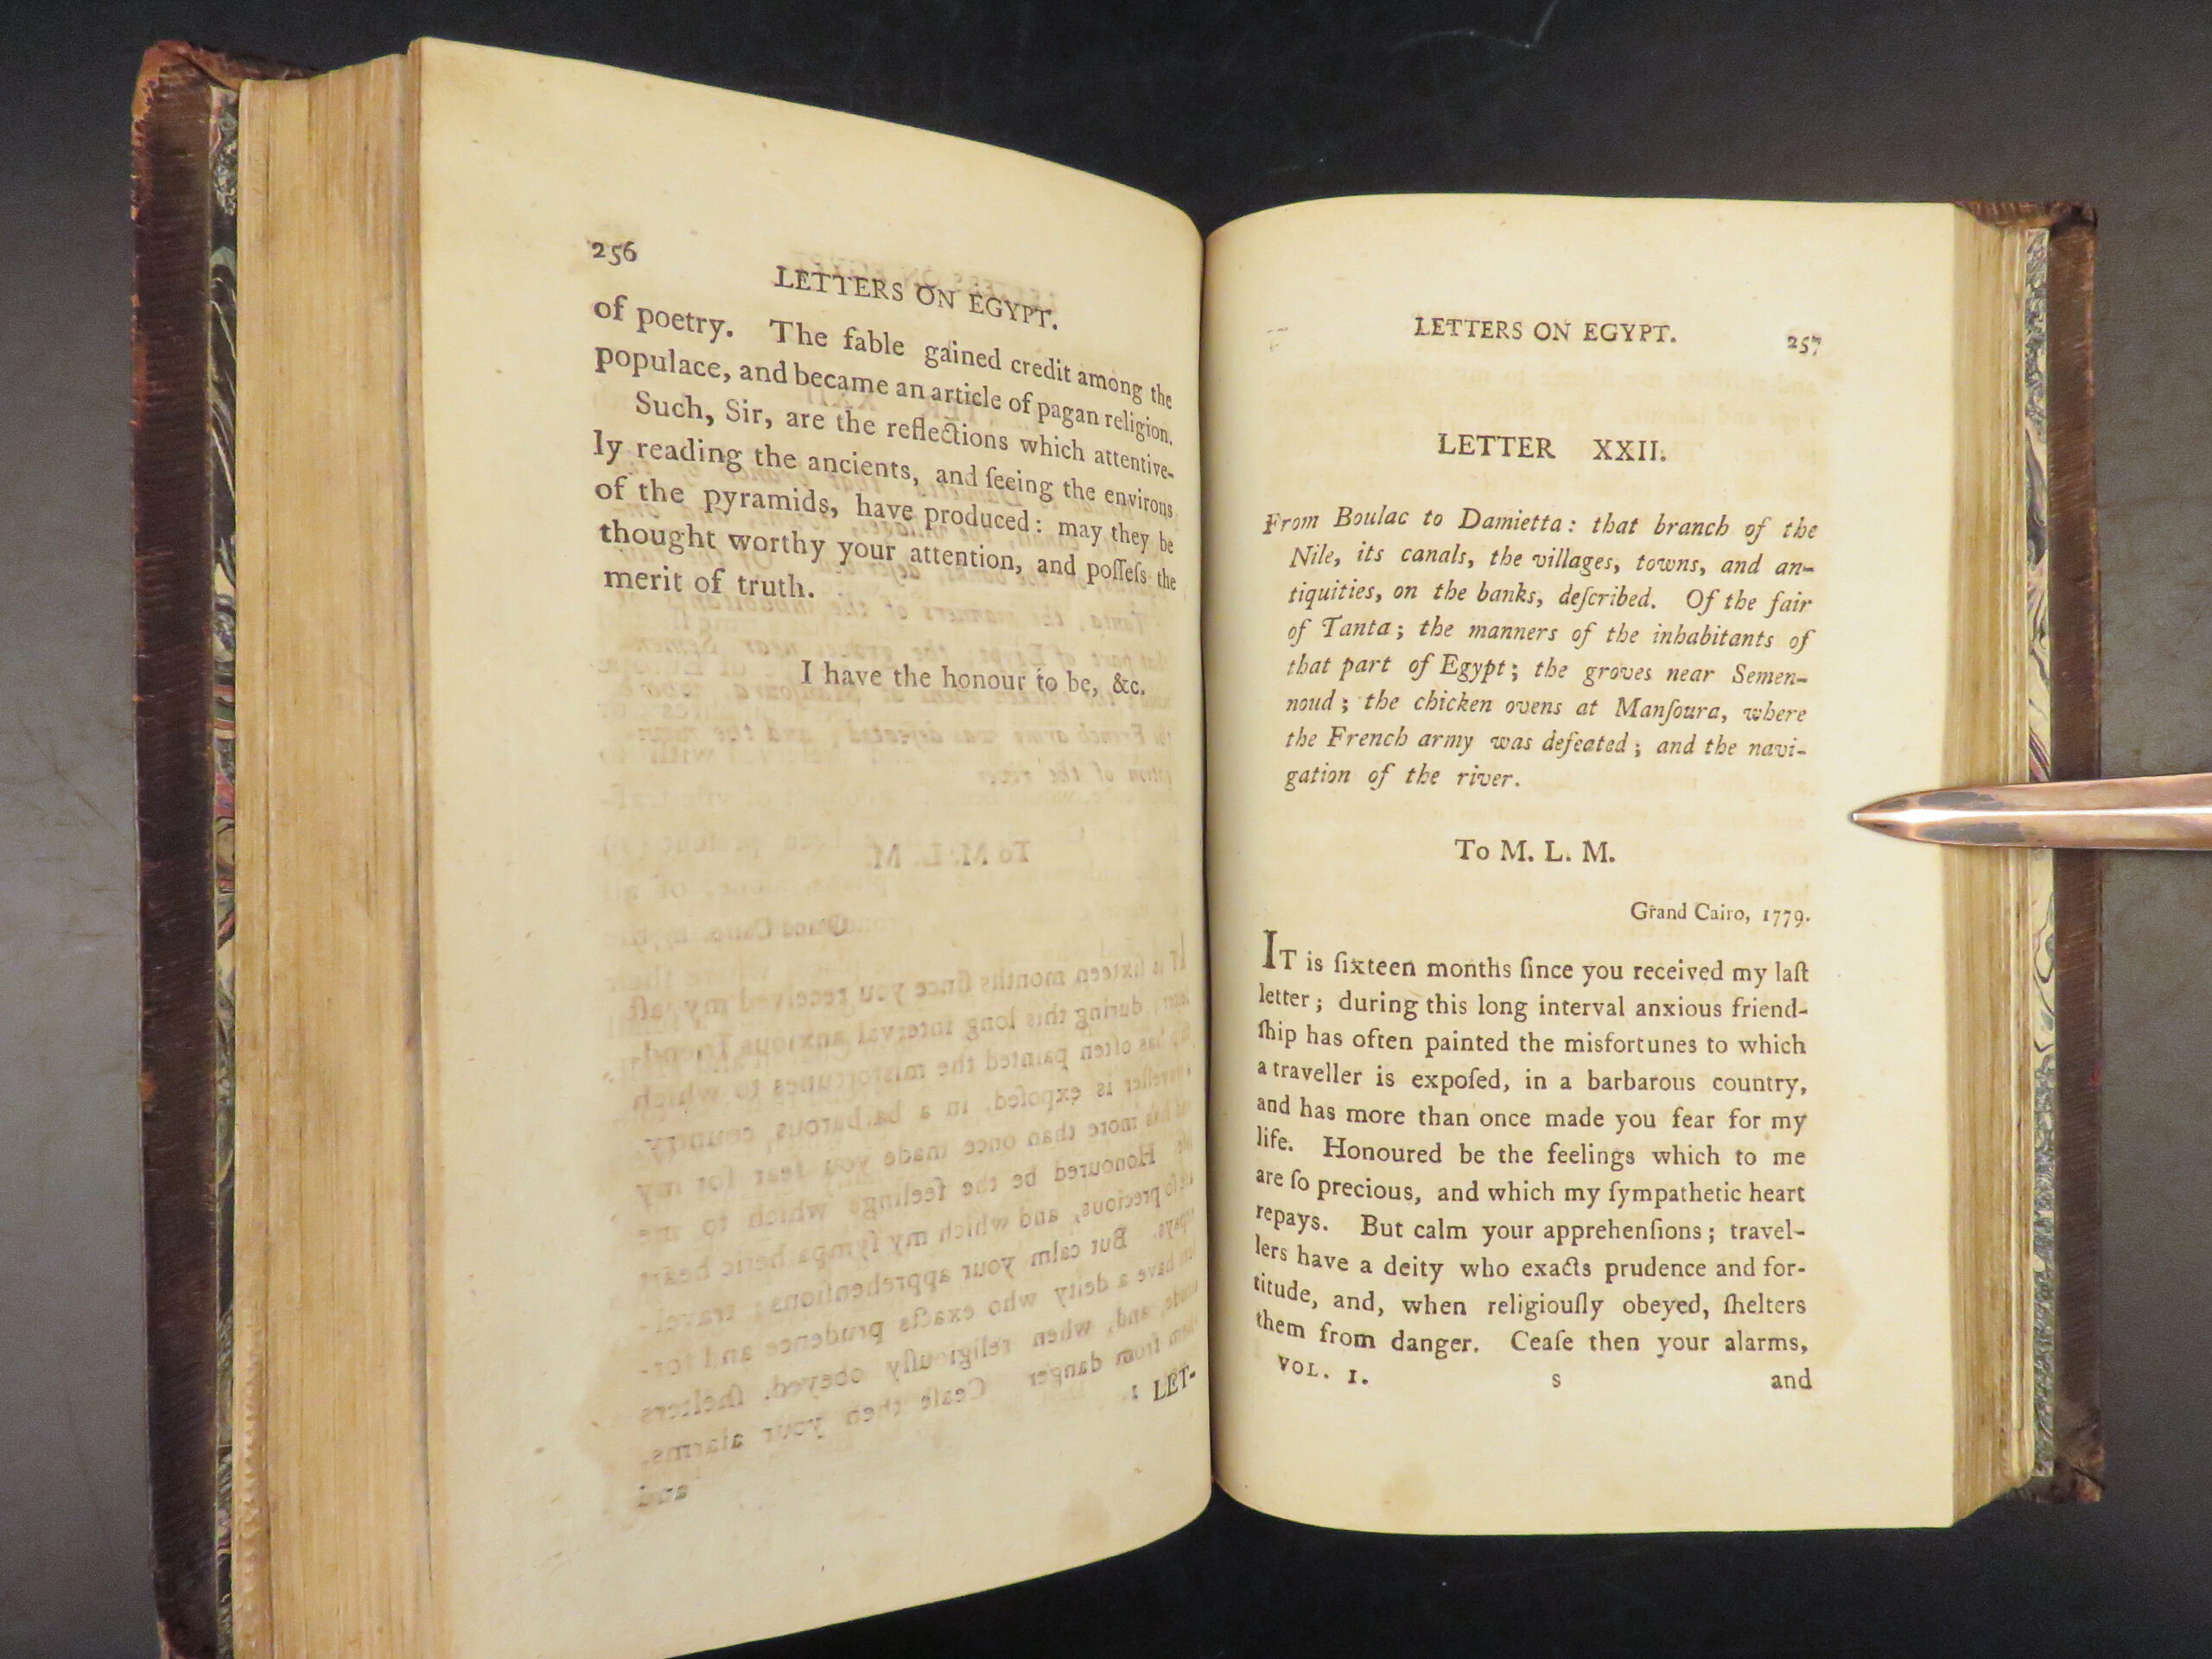 256
LETTERS ON EGYPT.
of poetry. The fable gained credit among the
populace, and became an article of pagan religion.
Such, Sir, are the reflections which attentive-
ly reading the ancients, and ſeeing the environs
of the pyramids, have produced: may they be
thought worthy your attention, and poſſeſs the
merit of truth.
I have the honour to be, &c.
LET-
LETTERS ON EGYPT. 257
LETTER XXII.
From Boulac to Damietta: that branch of the
Nile, its canals, the villages, towns, and an-
tiquities, on the banks, deſcribed. Of the fair
of Tanta; the manners of the inhabitants of
that part of Egypt; the groves near Semen-
noud; the chicken ovens at Manſoura, where
the French army was defeated; and the navi-
gation of the river.
To M. L. M.
Grand Cairo, 1779.
IT is ſixteen months ſince you received my laſt
letter; during this long interval anxious friend-
ſhip has often painted the misfortunes to which
a traveller is expoſed, in a barbarous country,
and has more than once made you fear for my
life. Honoured be the feelings which to me
are ſo precious, and which my ſympathetic heart
repays. But calm your apprehenſions; travel-
lers have a deity who exacts prudence and for-
titude, and, when religiouſly obeyed, ſhelters
them from danger. Ceaſe then your alarms,
VOL. I. S and